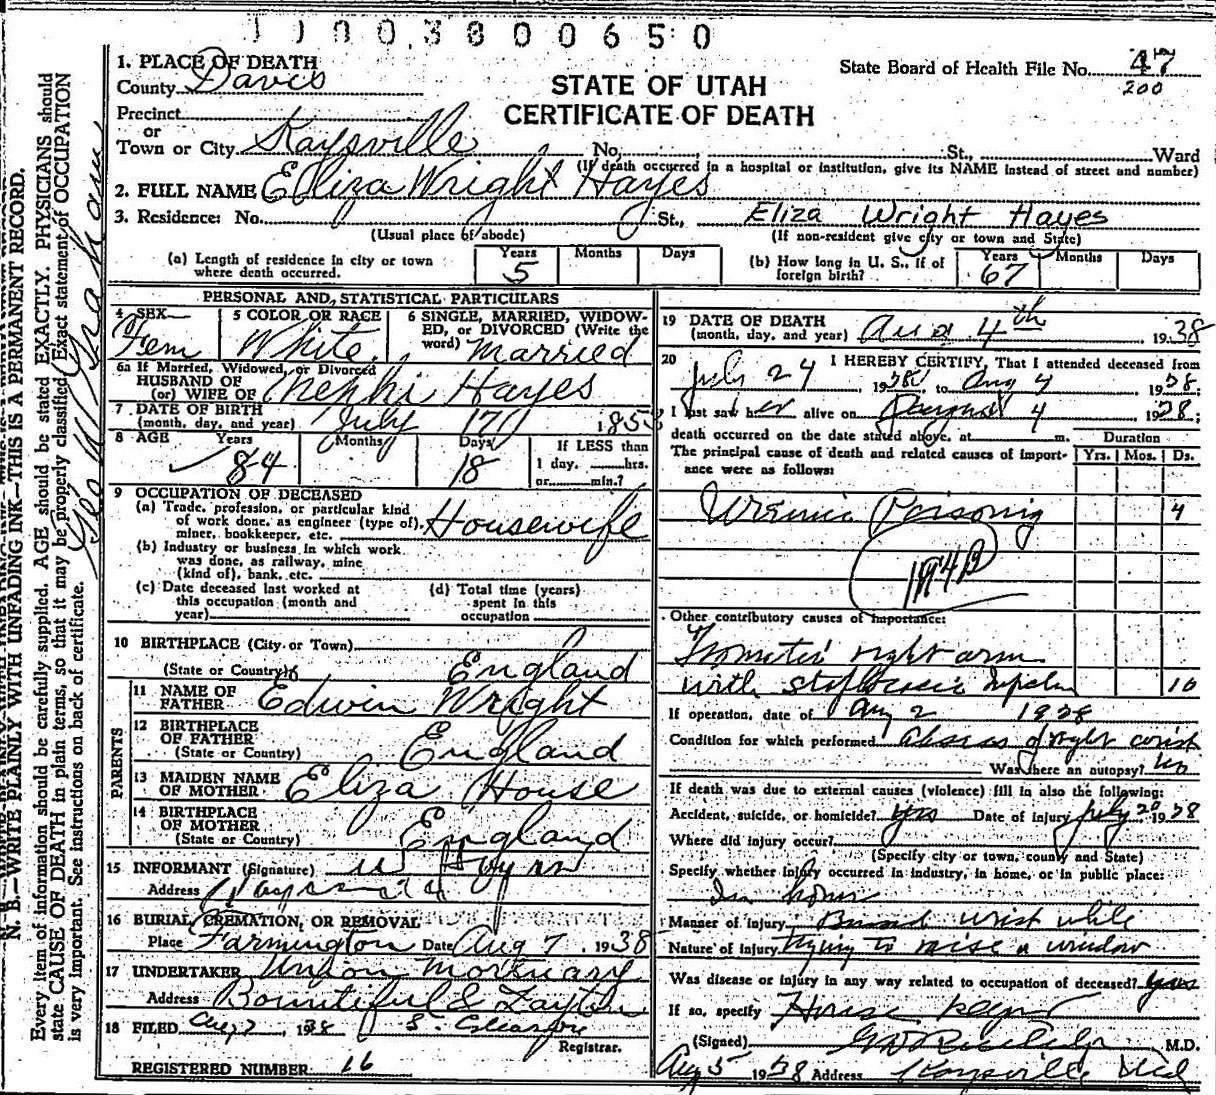 1 1 0 0 3 8 0 0 6 5 0
1. PLACE OF DEATH
County Davis
STATE OF UTAH
CERTIFICATE OF DEATH
State Board of Health File No. 47
200
Precinct
or
Town or City Kaysville No. St., Ward
(If death occurred in a hospital or institution, give its NAME instead of street and number)
2. FULL NAME Eliza Wright Hayes
3. Residence: No. St., Eliza Wright Hayes
(Usual place of abode) (If non-resident give city or town and State)
(a) Length of residence in city or town where death occurred. Years 5 Months Days
(b) How long in U. S., if of foreign birth? Years 67 Months Days
PERSONAL AND STATISTICAL PARTICULARS
4 SEX Fem
5 COLOR OR RACE White
6 SINGLE, MARRIED, WIDOWED, or DIVORCED (Write the word) Married
6a If Married, Widowed, or Divorced
HUSBAND OF
(or) WIFE OF Nephi Hayes
7 DATE OF BIRTH
(month, day, and year) July 17 1853
8 AGE Years 84 Months Days 18
If LESS than
1 day, hrs.
or min.?
9 OCCUPATION OF DECEASED
(a) Trade, profession, or particular kind
of work done, as engineer (type of),
miner, bookkeeper, etc. Housewife
(b) Industry or business in which work
was done, as railway, mine
(kind of), bank, etc.
(c) Date deceased last worked at
this occupation (month and
year)
(d) Total time (years)
spent in this
occupation
10 BIRTHPLACE (City or Town)
(State or Country) England
PARENTS
11 NAME OF
FATHER Edwin Wright
12 BIRTHPLACE
OF FATHER
(State or Country) England
13 MAIDEN NAME
OF MOTHER Eliza House
14 BIRTHPLACE
OF MOTHER
(State or Country) England
15 INFORMANT (Signature)
Address
16 BURIAL, CREMATION, OR REMOVAL
Place Farmington Date Aug 7, 1938
17 UNDERTAKER Union Mortuary
Address Bountiful & Layton
18 FILED Aug 7, 1938
Registrar.
REGISTERED NUMBER 16
19 DATE OF DEATH
(month, day, and year) Aug. 4th 1938
20 I HEREBY CERTIFY, That I attended deceased from
July 24 1938, to Aug 4 1938;
I last saw her alive on August 4 1938;
death occurred on the date stated above, at m.
The principal cause of death and related causes of importance were as follows:
Duration
Yrs. Mos. Ds.
Uremic Poisoning 4
Other contributory causes of importance:
right arm
with 10
If operation, date of Aug 2 1938
Condition for which performed Abscess of right wrist
Was there an autopsy? No
If death was due to external causes (violence) fill in also the following:
Accident, suicide, or homicide? Yes Date of injury July 20 1938
Where did injury occur?
(Specify city or town, county and State)
Specify whether injury occurred in industry, in home, or in public place:
In home
Manner of injury wrist while
Nature of injury trying to raise a window
Was disease or injury in any way related to occupation of deceased? yes
If so, specify House
(Signed) M.D.
Aug 5 1938 Address Kaysville
N. B.—WRITE PLAINLY WITH UNFADING INK—THIS IS A PERMANENT RECORD.
Every item of information should be carefully supplied. AGE should be stated EXACTLY. PHYSICIANS should
state CAUSE OF DEATH in plain terms, so that it may be properly classified. Exact statement of OCCUPATION
is very important. See instructions on back of certificate.